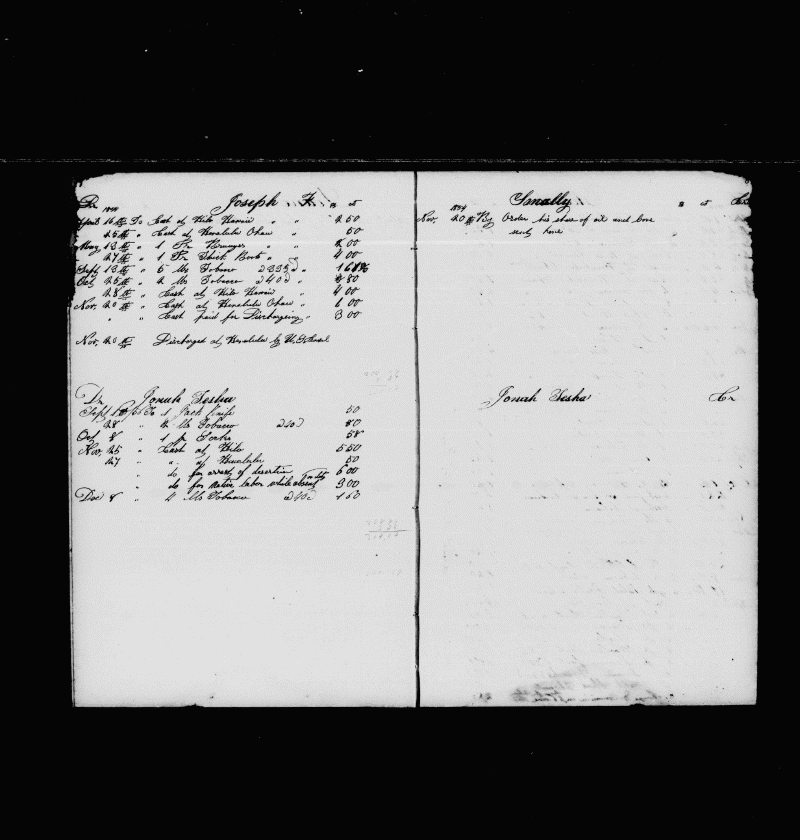 Dr 1854 Joseph. F.
April 16th To Cash at Hilo Hawaii " " 2 50
25th " Cash at Honolulu Oahu " 50
May 13th " 1 Pr " " 2 00
27th " 1 Pr Thick Boots " 4 00
Sept 13th " 5 lbs Tobacco
Oct 25th " 2 lbs Tobacco @ 40c " 80
28th " Cash at Hilo Hawaii " 4 00
Nov. 20th " Cash at Honolulu Oahu " 6 00
" " Cash paid for Discharging " 3 00
Nov. 20th Discharged at Honolulu by U.S. Consul
Dr Jonah Tesha
Sept To 1 Jack knife 50
28 " lbs Tobacco @ 40c 80
Oct 8 " 1 pr Socks 58
Nov. 25 " Cash at Hilo 5 50
27 " " at Honolulu 50
" do for arrest of desertion 6 00
" do for native labor while absent 3 00
Dec 8 " 4 lbs Tobacco @ 40c 1 60
Smally. $ ct Cr
1854
Nov. 20th By Order his share of oil and bone
sent home
Jonah Tesha Cr